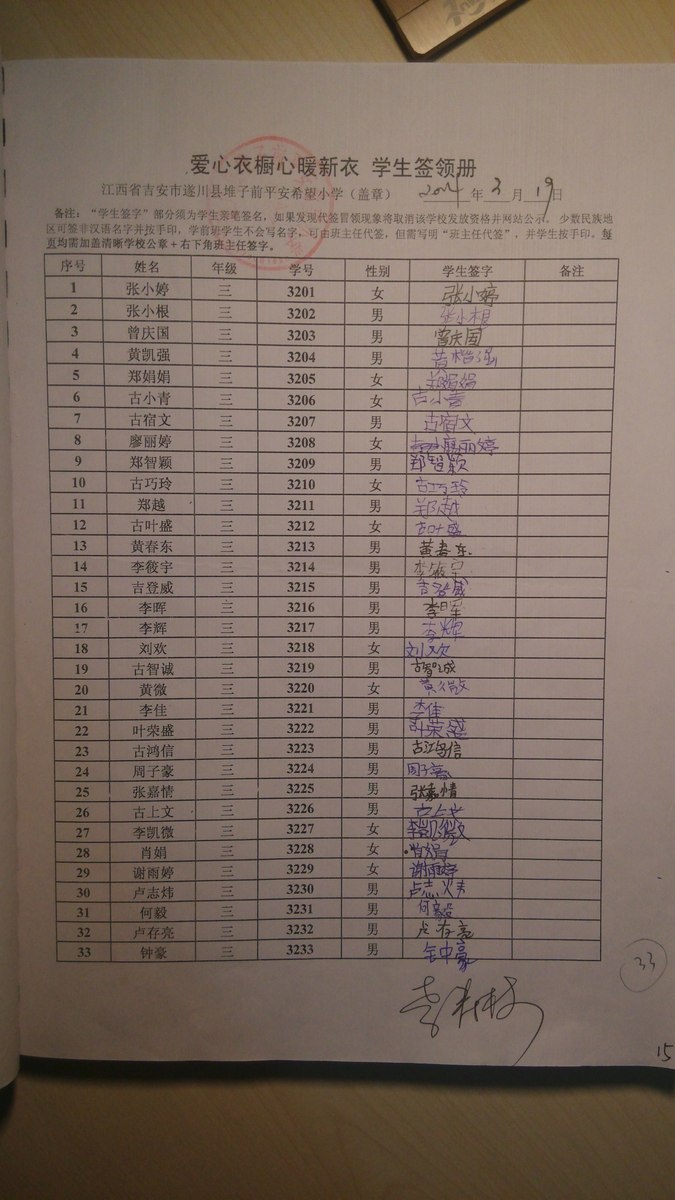 爱心衣橱心暖新衣 学生签领册
江西省吉安市遂川县堆子前平安希望小学（盖章） 2014 年 3 月 19 日
备注：“学生签字”部分须为学生亲笔签名，如果发现代签冒领现象将取消该学校发放资格并网站公示。 少数民族地
区可签非汉语名字并按手印，学前班学生不会写名字，可由班主任代签，但需写明“班主任代签”，并学生按手印。每
页均需加盖清晰学校公章+右下角班主任签字。
序号 姓名 年级 学号 性别 学生签字 备注
1 张小婷 三 3201 女 张小婷
2 张小根 三 3202 男 张小根
3 曾庆国 三 3203 男 曾庆国
4 黄凯强 三 3204 男 黄楷强
5 郑娟娟 三 3205 女 郑娟娟
6 古小青 三 3206 女 古小青
7 古宿文 三 3207 男 古宿文
8 廖丽婷 三 3208 女 廖丽婷
9 郑智颖 三 3209 男 郑智颖
10 古巧玲 三 3210 女 古巧玲
11 郑越 三 3211 男 郑越
12 古叶盛 三 3212 女 古叶盛
13 黄春东 三 3213 男 黄春东.
14 李筱宇 三 3214 男 李筱宇
15 吉登威 三 3215 男 吉登威
16 李晖 三 3216 男 李晖
17 李辉 三 3217 男 李辉
18 刘欢 三 3218 女 刘欢
19 古智诚 三 3219 男 古智诚
20 黄微 三 3220 女 黄微
21 李佳 三 3221 男 李佳
22 叶荣盛 三 3222 男 叶荣盛
23 古鸿信 三 3223 男 古鸿信
24 周子豪 三 3224 男 周子豪
25 张嘉情 三 3225 男 张嘉情
26 古上文 三 3226 男 古上文
27 李凯微 三 3227 女 李凯微
28 肖娟 三 3228 女 肖娟
29 谢雨婷 三 3229 女 谢雨婷
30 卢志炜 三 3230 男 卢志炜
31 何毅 三 3231 男 何毅
32 卢存亮 三 3232 男 卢存亮
33 钟豪 三 3233 男 钟豪
33
15